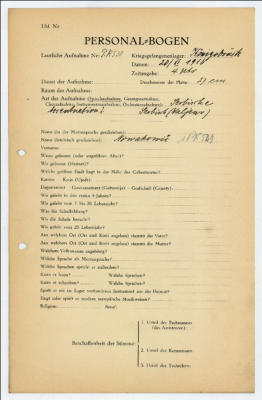 Lfd. Nr.
PERSONAL-BOGEN
Lautliche Aufnahme Nr.: PK
Kriegsgefangenenlager: Königsbrück
Datum:
Zeitangabe: 4 Uhr
Dauer der Aufnahme:
Durchmesser der Platte: 27 cm
Raum der Aufnahme:
Art der Aufnahme (Sprechaufnahme, Gesangsaufnahme,
Choraufnahme, Instrumentenaufnahme, Orchesteraufnahme): Serbische
Name (in der Muttersprache geschrieben):
Name (lateinisch geschrieben):
Vorname:
Wann geboren (oder ungefähres Alter)?
Wo geboren (Heimat)?
Welche größere Stadt liegt in der Nähe des Geburtsortes?
Kanton — Kreis (Ujedz):
Departement — Gouvernement (Gubernija) — Grafschaft (County):
Wo gelebt in den ersten 6 Jahren?
Wo gelebt vom 7. bis 20. Lebensjahr?
Was für Schulbildung?
Wo die Schule besucht?
Wo gelebt vom 20. Lebensjahr?
Aus welchem Ort (Ort und Kreis angeben) stammt der Vater?
Aus welchem Ort (Ort und Kreis angeben) stammt die Mutter?
Welchem Volksstamm angehörig?
Welche Sprache als Muttersprache?
Welche Sprachen spricht er außerdem?
Kann er lesen? Welche Sprachen?
Kann er schreiben? Welche Sprachen?
Spielt er ein im Lager vorhandenes Instrument aus der Heimat?
Singt oder spielt er modern europäische Musikweisen?
Religion: Beruf:
Beschaffenheit der Stimme:
1. Urteil des Fachmannes
(des Assistenten):
2. Urteil des Kommissars:
3. Urteil des Technikers: